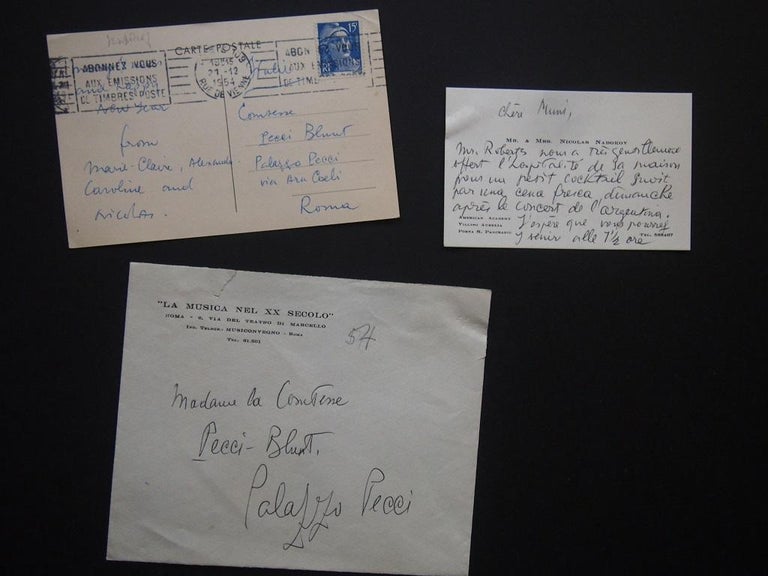 CARTE POSTALE
ABONNEZ VOUS
AUX EMISSIONS
DE TIMBRES-POSTE
21-12
1954
RUE DE VIENNE
ABON VOU
AUX EMISS
DE TIM
15F
RF
Italie
and Happy
New Year
from
Marie-Claire, Alexandre
Caroline and
Nicolas.
Comtesse
Pecci Blunt
Palazzo Pecci
via Ara Coeli
Roma
Chère Mimi,
MR. & MRS. NICOLAS NABOKOV
Mr. Roberts nous a très gentillement
offert l'hospitalité de sa maison
pour un petit cocktail suivit
par una cena fresca dimanche
après le concert de l'argentina.
J'espère que vous pourrez
y venir alle 7½ ore
AMERICAN ACADEMY
VILLINO AURELIA
PORTA S. PANCRAZIO
TEL.
"LA MUSICA NEL XX SECOLO"
ROMA - 2, VIA DEL TEATRO DI MARCELLO
IND. TELEGR.: MUSICONVEGNO - ROMA
TEL. 61.501
574
Madame la Comtesse
Pecci-Blunt,
Palazzo Pecci